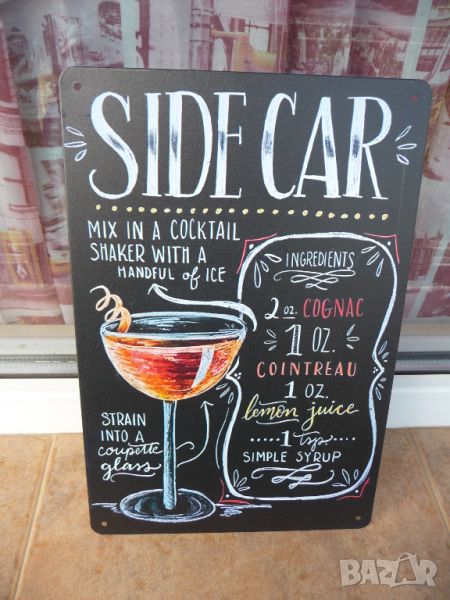 SIDE CAR
MIX IN A COCKTAIL
SHAKER WITH A
HANDFUL of ICE
INGREDIENTS
2 oz. COGNAC
1 OZ.
COINTREAU
1 OZ
lemon juice
1 tsp
SIMPLE SYRUP
STRAIN
INTO A
coupette
glass
BAZAR